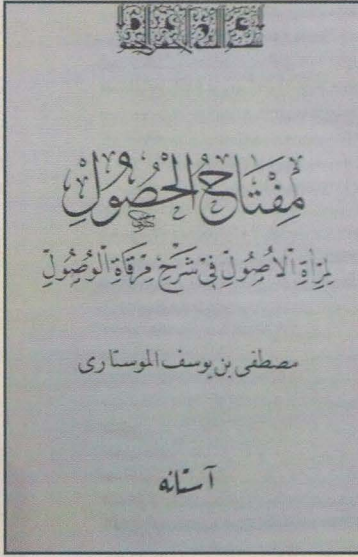 مِفْتَاحُ الْحُصُولِ
لِمِرْآةِ الْاُصُولِ فِى شَرْحِ مِرْقَاةِ الْوُصُولِ
مصطفى بن يوسف الموستارى
آستانه